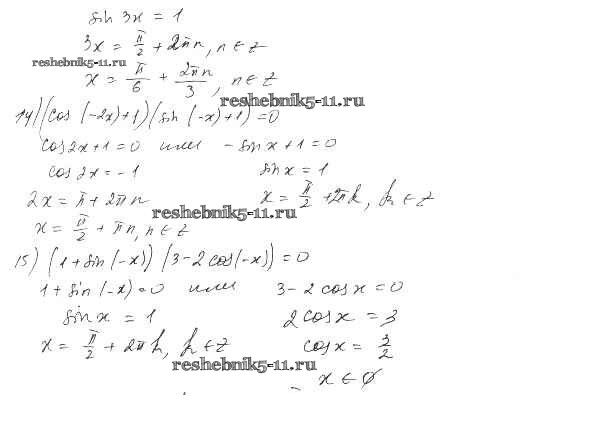 sin 3x = 1
3x = π/2 + 2πn, n ∈ Z
reshebnik5-11.ru
x = π/6 + 2πn/3, n ∈ Z
reshebnik5-11.ru
14) (cos (-2x)+1) (sin (-x)+1) = 0
cos 2x + 1 = 0 или - sin x + 1 = 0
cos 2x = -1 sin x = 1
2x = π + 2πn x = π/2 + 2πk, k ∈ Z
reshebnik5-11.ru
x = π/2 + πn, n ∈ Z
15) (1 + sin (-x)) (3 - 2 cos (-x)) = 0
1 + sin (-x) = 0 или 3 - 2 cos x = 0
sin x = 1 2 cos x = 3
x = π/2 + 2πk, k ∈ Z cos x = 3/2
reshebnik5-11.ru
x ∈ ∅